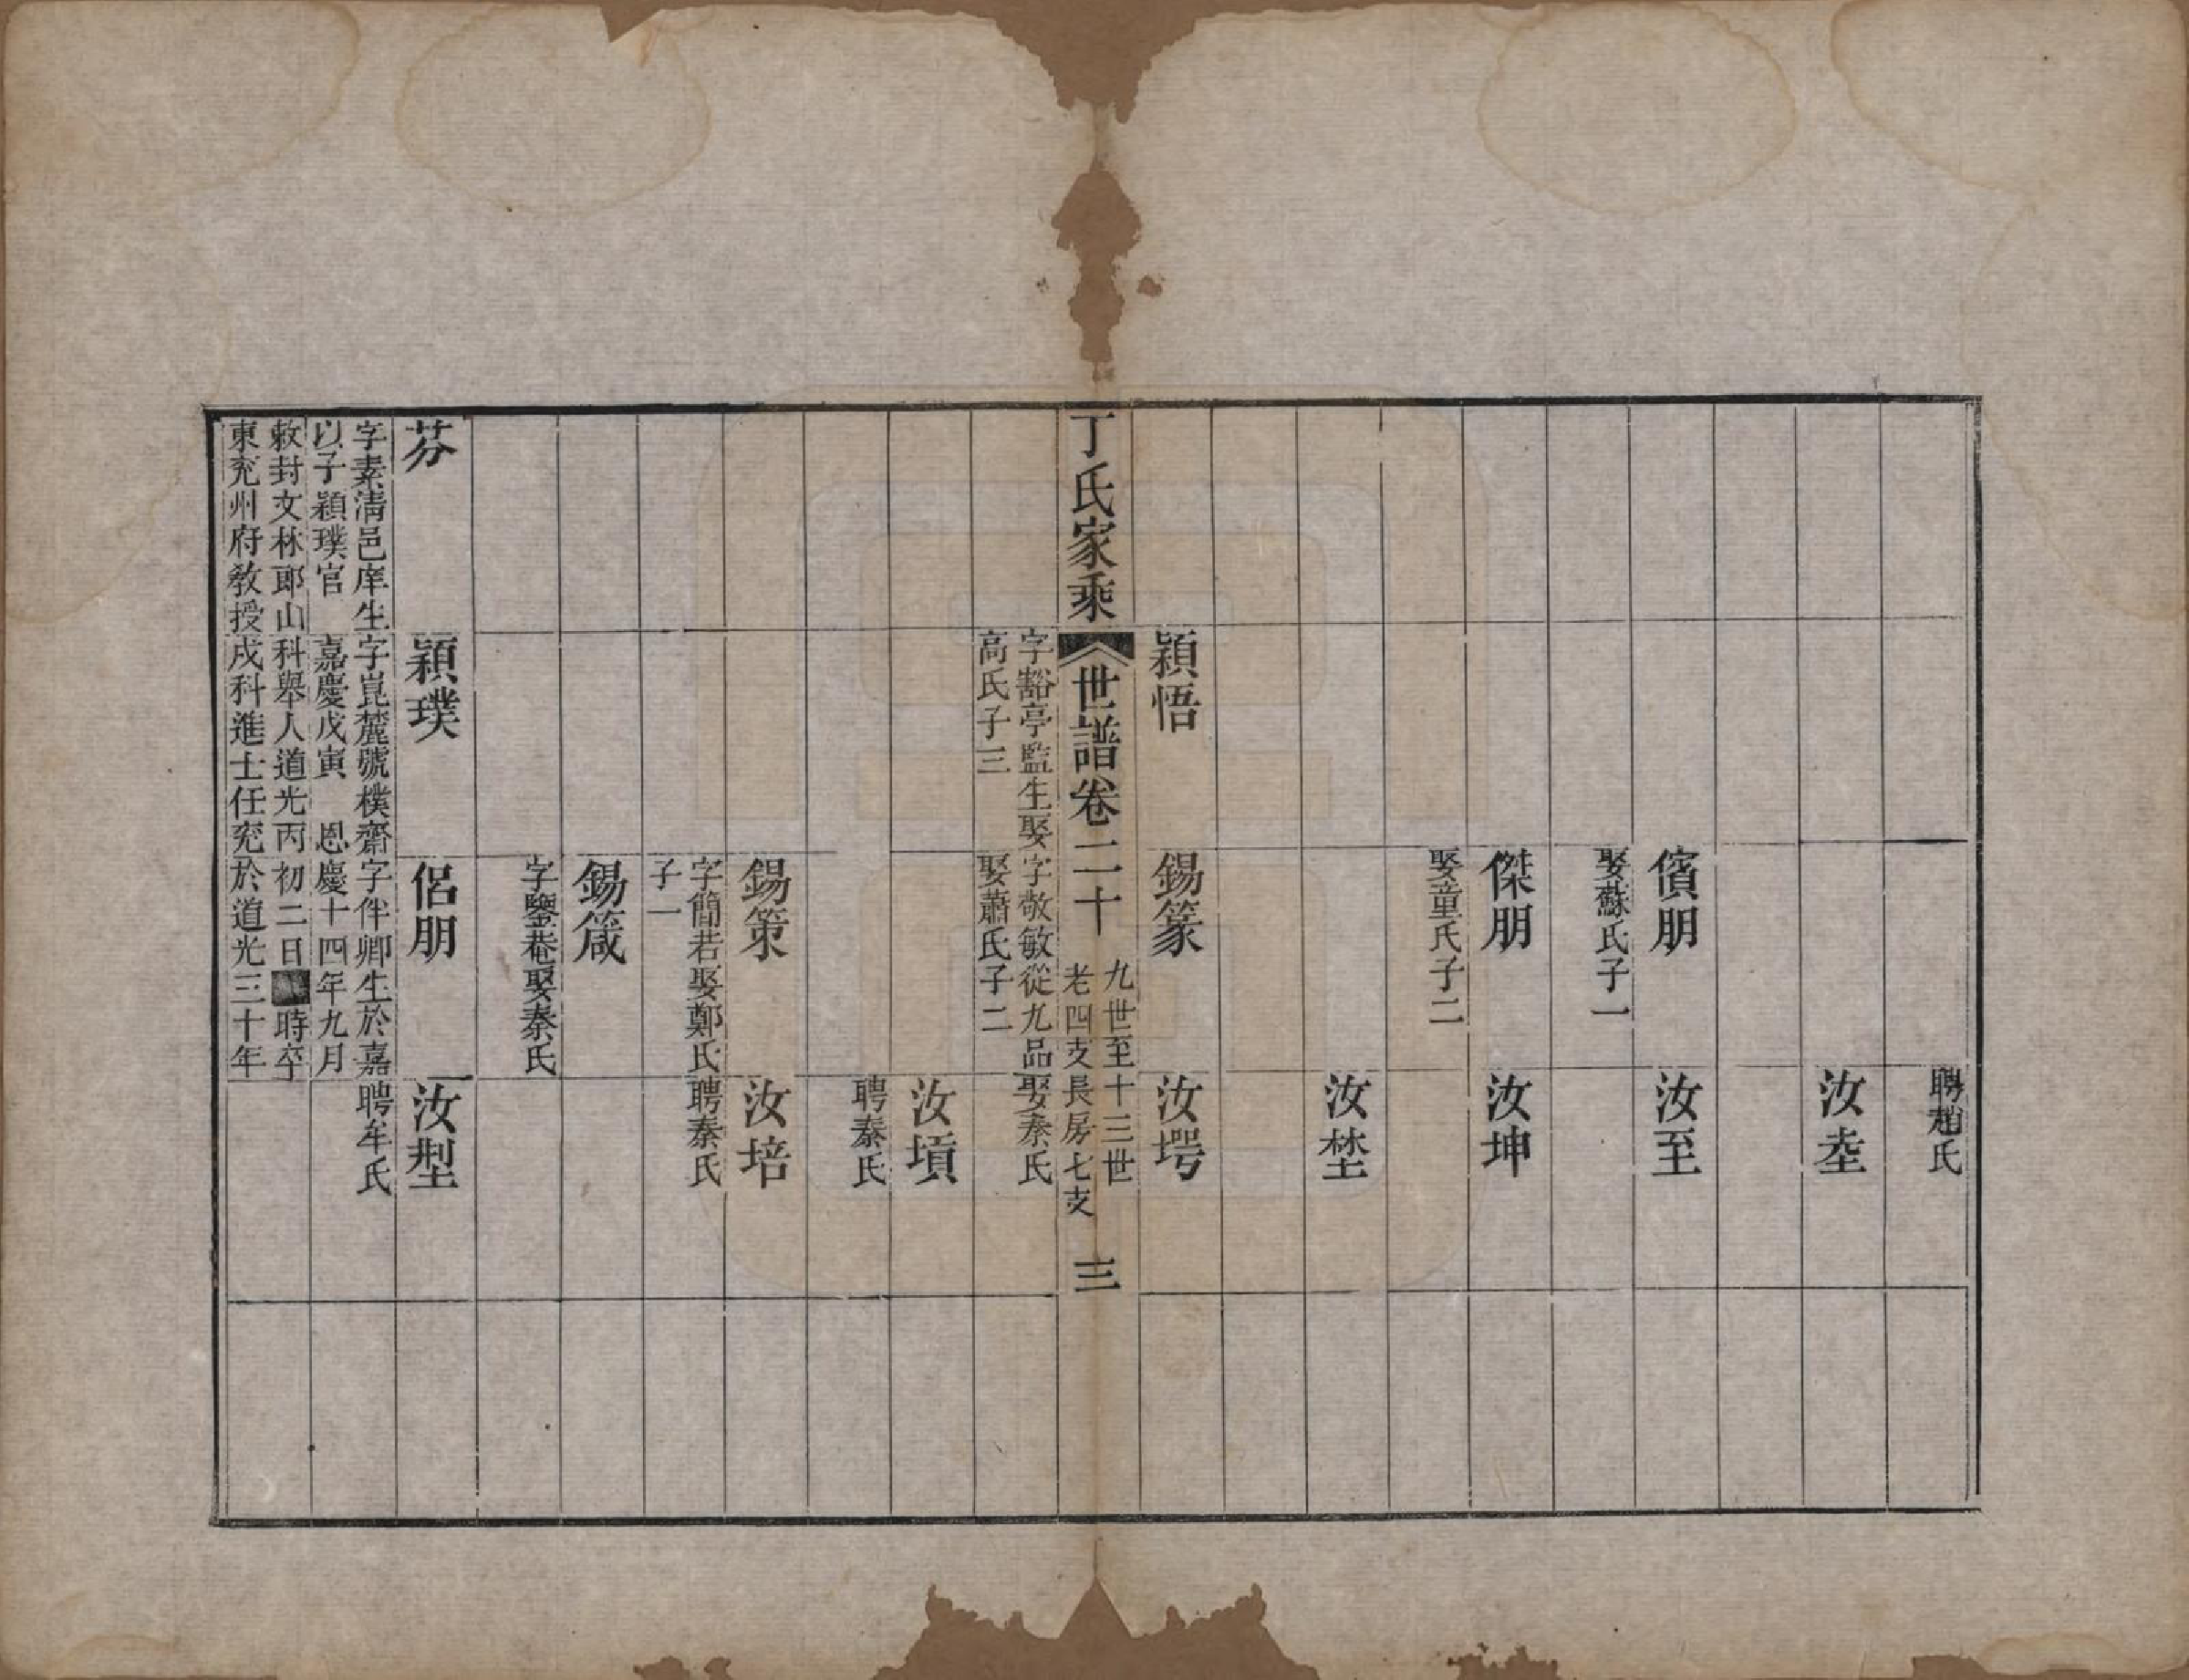 聘趙氏
汝坴
儐朋
娶蘇氏子一
汝至
傑朋
娶童氏子二
汝坤
汝埜
穎悟
字豁亭監生娶
高氏子三
錫篆
字敬敏從九品
娶蕭氏子二
汝堮
娶秦氏
丁氏家乘
世譜卷二十
九世至十三世
老四支長房七支
三
汝墳
聘秦氏
錫策
字簡若娶鄭氏
子一
汝培
聘秦氏
錫箴
字鑒菴娶秦氏
芬
字素清邑庠生
以子穎璞官
敕封文林郎山
東兖州府教授
穎璞
字崑麓號樸齋
嘉慶戊寅 恩
科舉人道光丙
戌科進士任兖
侣朋
字伴卿生於嘉
慶十四年九月
初二日時卒
於道光三十年
汝型
聘牟氏